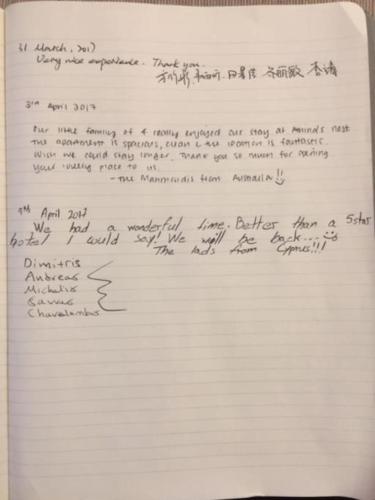 31 March, 2017
Very nice experience. Thank you.
3rd April 2017
Our little family of 4 really enjoyed our stay at Athina's Nest
The apartment is spacious, clean & the location is fantastic.
Wish we could stay longer. Thank you so much for opening
your lovely place to us.
- The Mavroudis from Australia !!
9th April 2017
We had a wonderful time. Better than a 5star
hotel I would say! We will be back....
The lads from Cyprus!!!
Dimitris
Andreas
Michalis
Savvas
Charalambos